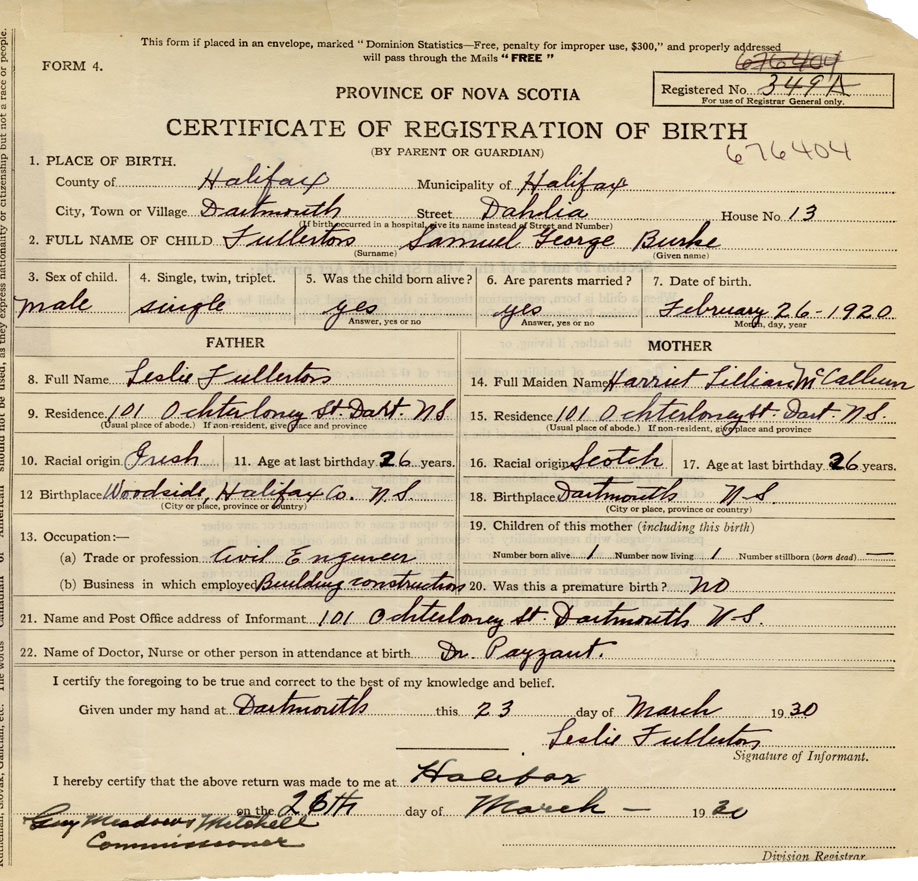 This form if placed in an envelope, marked "Dominion Statistics—Free, penalty for improper use, $300," and properly addressed
will pass through the Mails "FREE"
FORM 4.
676404
Registered No. 349A
For use of Registrar General only.
PROVINCE OF NOVA SCOTIA
CERTIFICATE OF REGISTRATION OF BIRTH
(BY PARENT OR GUARDIAN)
676404
1. PLACE OF BIRTH.
County of Halifax Municipality of Halifax
City, Town or Village Dartmouth Street Dahlia House No. 13
(If birth occurred in a hospital, give its name instead of Street and Number)
2. FULL NAME OF CHILD Fullerton Samuel George Burke
(Surname) (Given name)
3. Sex of child. 4. Single, twin, triplet. 5. Was the child born alive? 6. Are parents married? 7. Date of birth.
male single yes yes February 26-1920
Answer, yes or no Answer, yes or no Month, day, year
FATHER MOTHER
8. Full Name Leslie Fullerton 14. Full Maiden Name Harriet Lillian McCallum
9. Residence 101 Ochterloney St. Dart. N S 15. Residence 101 Ochterloney St. Dart. N.S.
(Usual place of abode.) If non-resident, give place and province (Usual place of abode.) If non-resident, give place and province
10. Racial origin Irish 11. Age at last birthday 26 years. 16. Racial origin Scotch 17. Age at last birthday 26 years.
12 Birthplace Woodside, Halifax Co. N S. 18. Birthplace Dartmouth N-S.
(City or place, province or country) (City or place, province or country)
13. Occupation:— 19. Children of this mother (including this birth)
(a) Trade or profession Civil Engineer Number born alive 1 Number now living 1 Number stillborn (born dead) —
(b) Business in which employed Building construction 20. Was this a premature birth? NO
21. Name and Post Office address of Informant 101 Ochterloney St. Dartmouth N-S.
22. Name of Doctor, Nurse or other person in attendance at birth Dr. Payzant.
I certify the foregoing to be true and correct to the best of my knowledge and belief.
Given under my hand at Dartmouth this 23 day of March 1930
Leslie Fullerton
Signature of Informant.
I hereby certify that the above return was made to me at Halifax
on the 26th day of March — 1930
Guy Meadows Mitchell
Commissioner
Division Registrar.